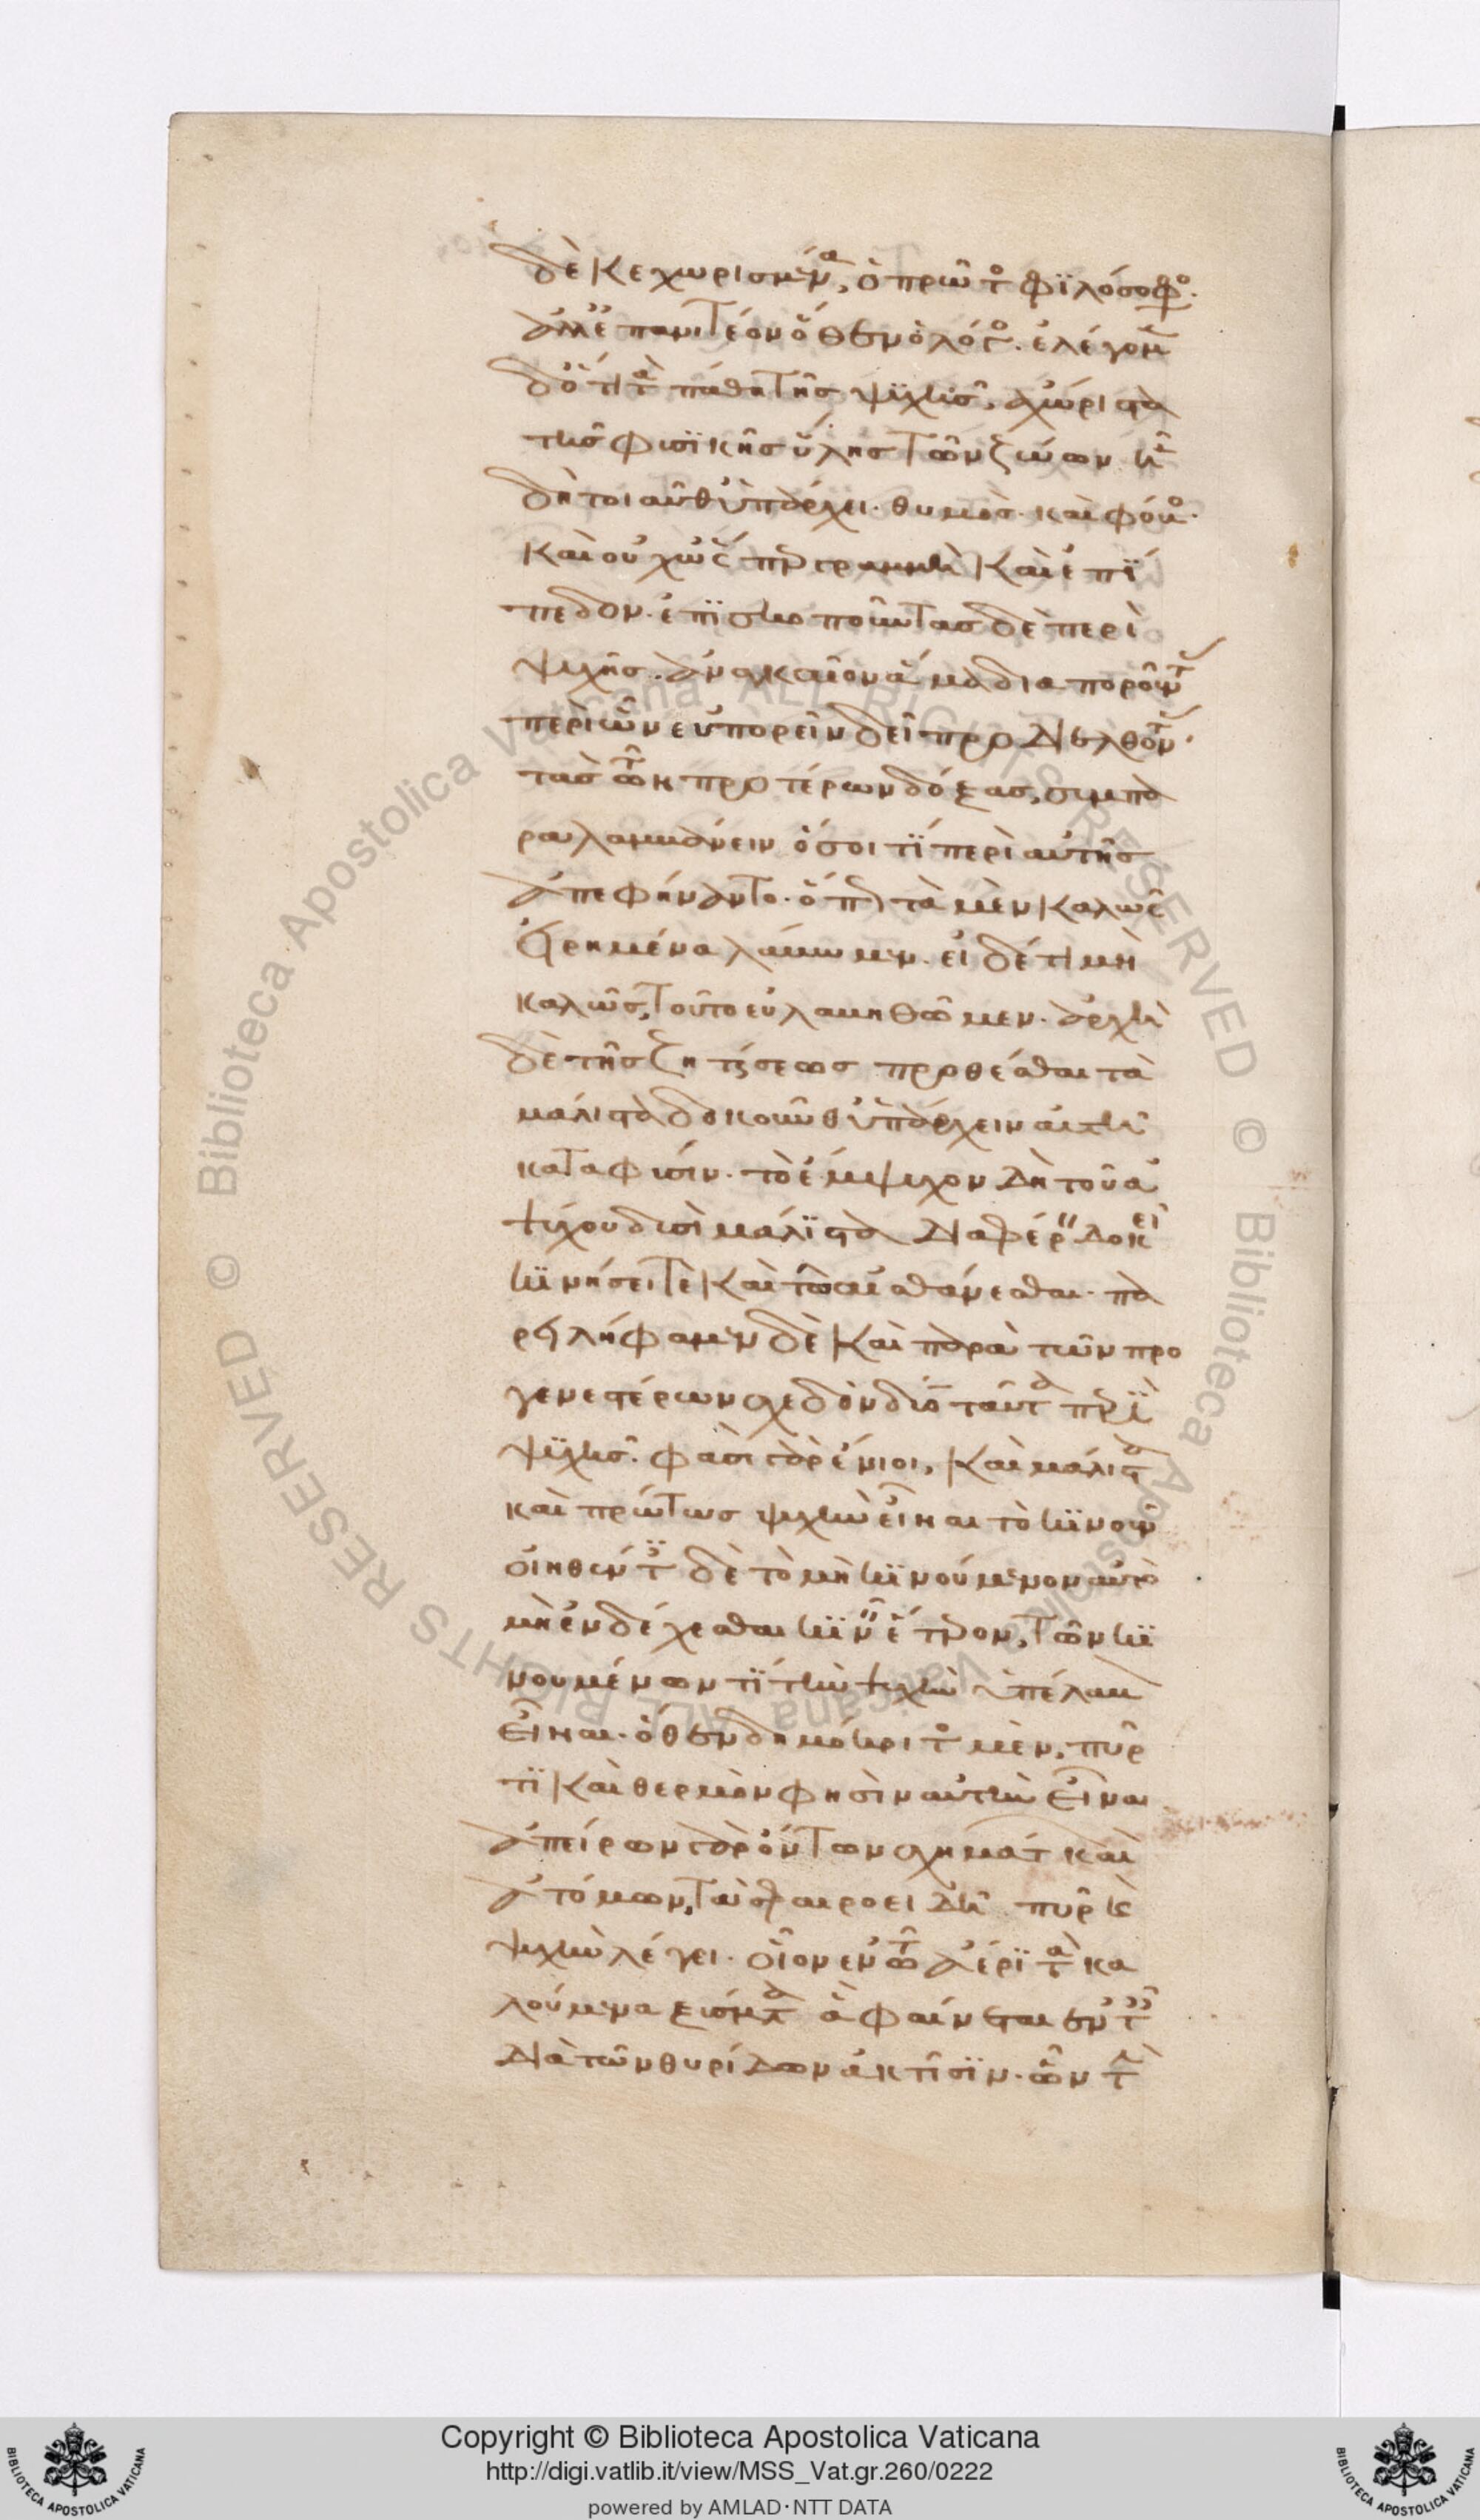 δὲ κεχωρισμένα, ὁ πρῶτος φιλόσοφος.
ἀλλ' ἐπανιτέον ὅθεν ὁ λόγος. ἐλέγομεν
δ' ὅτι τὰ πάθη τῆς ψυχῆς, ἀχώριστα
τῆς φυσικῆς ὕλης τῶν ζώων ᾗ
δὴ τοιαῦθ' ὑπάρχει. θυμὸς καὶ φόβος.
καὶ οὐχ ὥσπερ γραμμὴ καὶ ἐπί
πεδον. ἐπισκοποῦντας δὲ περὶ
ψυχῆς. ἀναγκαῖον ἅμα διαποροῦντας
περὶ ὧν εὐπορεῖν δεῖ προελθόντας.
τὰς τῶν προτέρων δόξας, συμπα
ραλαμβάνειν ὅσοι τι περὶ αὐτῆς
ἀπεφήναντο. ὅπως τὰ μὲν καλῶς
εἰρημένα λάβωμεν. εἰ δέ τι μὴ
καλῶς, τοῦτο εὐλαβηθῶμεν. ἀρχὴ
δὲ τῆς ζητήσεως προθέσθαι τὰ
μάλιστα δοκοῦνθ' ὑπάρχειν αὐτῇ
κατὰ φύσιν. τὸ ἔμψυχον δὴ τοῦ ἀ
ψύχου δυσὶ μάλιστα διαφέρειν δοκεῖ
κινήσει τε καὶ τῷ αἰσθάνεσθαι. πα
ρειλήφαμεν δὲ καὶ παρὰ τῶν προ
γενεστέρων σχεδὸν δύο ταῦτα περὶ
ψυχῆς. φασὶ γὰρ ἔνιοι, καὶ μάλιστα
καὶ πρώτως ψυχὴν εἶναι τὸ κινοῦν
οἰηθέντες δὲ τὸ μὴ κινούμενον αὐτὸ
μὴ ἐνδέχεσθαι κινεῖν ἕτερον, τῶν κι
νουμένων τι τὴν ψυχὴν ὑπέλαβον
εἶναι. ὅθεν δημόκριτος μὲν, πῦρ
τι καὶ θερμόν φησιν αὐτὴν εἶναι
ἀπείρων γὰρ ὄντων σχημάτων καὶ
ἀτόμων, τὰ σφαιροειδῆ πῦρ καὶ
ψυχὴν λέγει. οἷον ἐν τῷ ἀέρι τὰ κα
λούμενα ξύσματα ἃ φαίνεται ἐν ταῖς
διὰ τῶν θυρίδων ἀκτῖσιν. ὧν τὴν